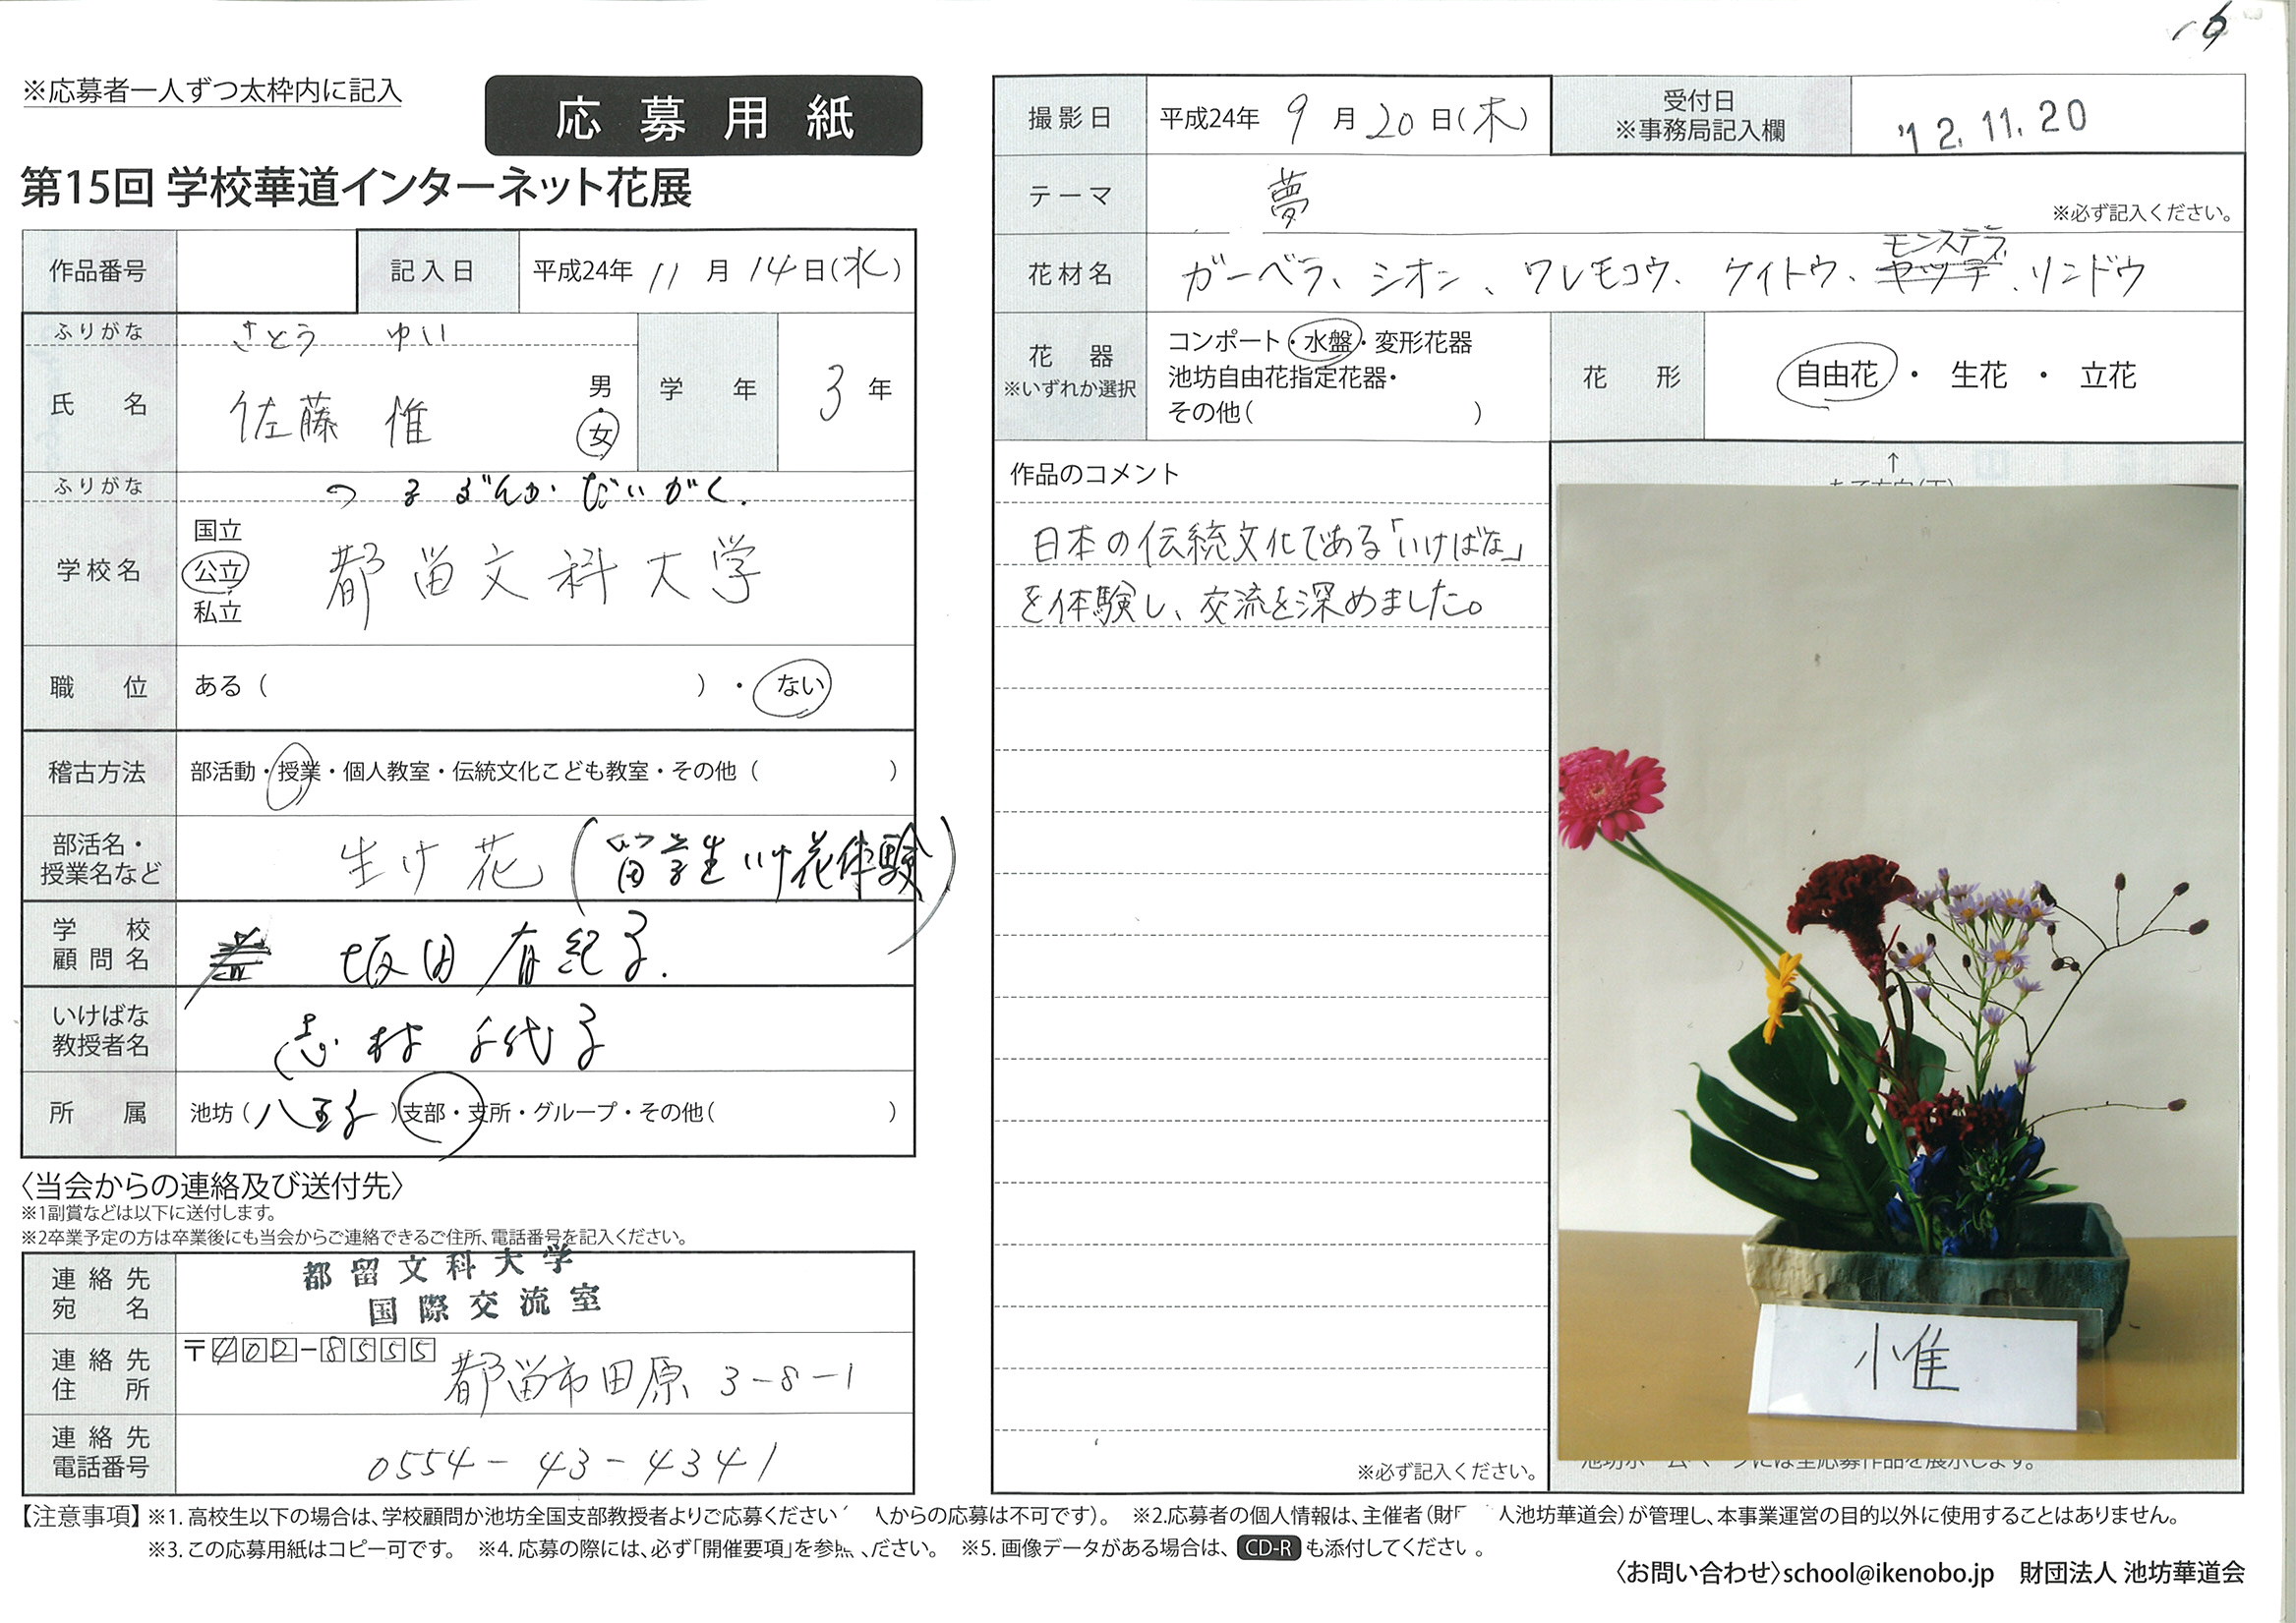 16
※応募者一人ずつ太枠内に記入
応募用紙
第15回 学校華道インターネット花展
作品番号
記入日 平成24年 11月 14日(水)
ふりがな さとう ゆい
氏名 佐藤 惟 男・女
学年 3年
ふりがな つるぶんかだいがく.
学校名 国立 公立 私立 都留文科大学
職位 ある( )・ない
稽古方法 部活動・授業・個人教室・伝統文化こども教室・その他( )
部活名・授業名など 生け花(留学生いけ花体験)
学校顧問名 坂田 有紀子.
いけばな教授者名 志村 千代子
所属 池坊(八王子)支部・支所・グループ・その他( )
〈当会からの連絡及び送付先〉
※1副賞などは以下に送付します。
※2卒業予定の方は卒業後にも当会からご連絡できるご住所、電話番号を記入ください。
連絡先宛名 都留文科大学
国際交流室
連絡先住所 〒402-8555 都留市田原 3-8-1
連絡先電話番号 0554-43-4341
撮影日 平成24年 9月 20日(木)
受付日
※事務局記入欄
'12.11.20
テーマ 夢 ※必ず記入ください。
花材名 ガーベラ、シオン、ワレモコウ、ケイトウ、モンステラ、リンドウ
花器
※いずれか選択
コンポート・水盤・変形花器
池坊自由花指定花器・
その他( )
花形 自由花・生花・立花
作品のコメント
日本の伝統文化である「いけばな」
を体験し、交流を深めました。
※必ず記入ください。
↑
惟
【注意事項】※1. 高校生以下の場合は、学校顧問か池坊全国支部教授者よりご応募ください 人からの応募は不可です)。 ※2.応募者の個人情報は、主催者(財 人池坊華道会)が管理し、本事業運営の目的以外に使用することはありません。
※3. この応募用紙はコピー可です。 ※4. 応募の際には、必ず「開催要項」を参 ださい。 ※5. 画像データがある場合は、CD-Rも添付してください。
〈お問い合わせ〉school@ikenobo.jp 財団法人 池坊華道会